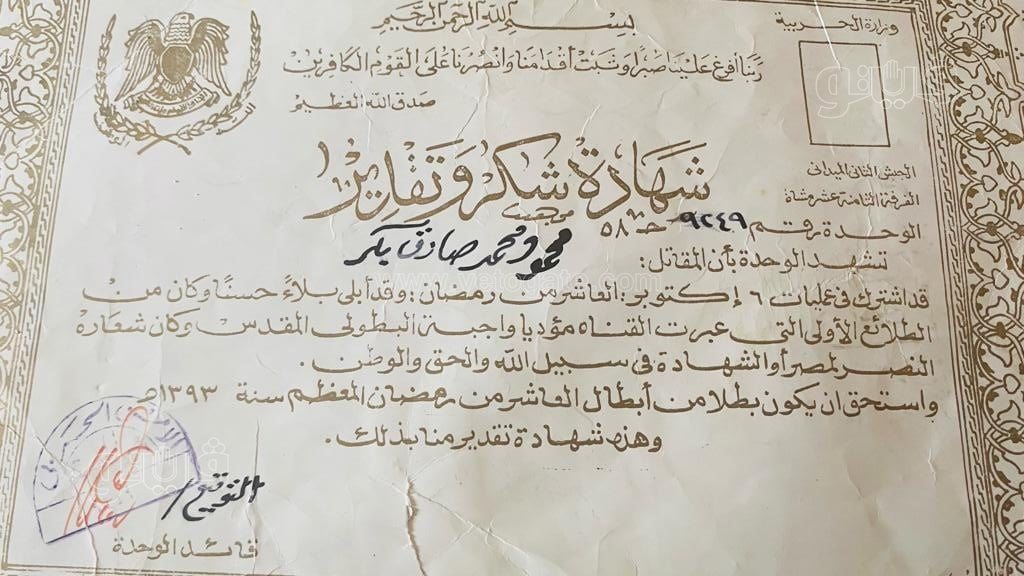 بسم الله الرحمن الرحيم
وزارة الحربية
ربنا أفرغ علينا صبرا وثبت أقدامنا وانصرنا على القوم الكافرين
صدق الله العظيم
شهادة شكر وتقدير
الجيش الثانى الميدانى
الفرقة الثامنة عشر مشاة
الوحدة رقم ٩٢٤٩ حـ ٥٨
تشهد الوحدة بأن المقاتل: محمود محمد صادق بكر
قد اشترك فى عمليات ٦ إكتوبر: العاشر من رمضان: وقد أبلى بلاءً حسنًا وكان من
الطلائع الأولى التى عبرت القناه مؤديا واجبة البطولى المقدس وكان شعارة
النصر لمصر أو الشهادة فى سبيل الله والحق والوطن.
واستحق ان يكون بطلا من أبطال العاشر من رمضان المعظم سنة ١٣٩٣هـ
وهذه شهادة تقدير منا بذلك.
التوقيع/
قائد الوحدة
فيتو
www.vetogate.com